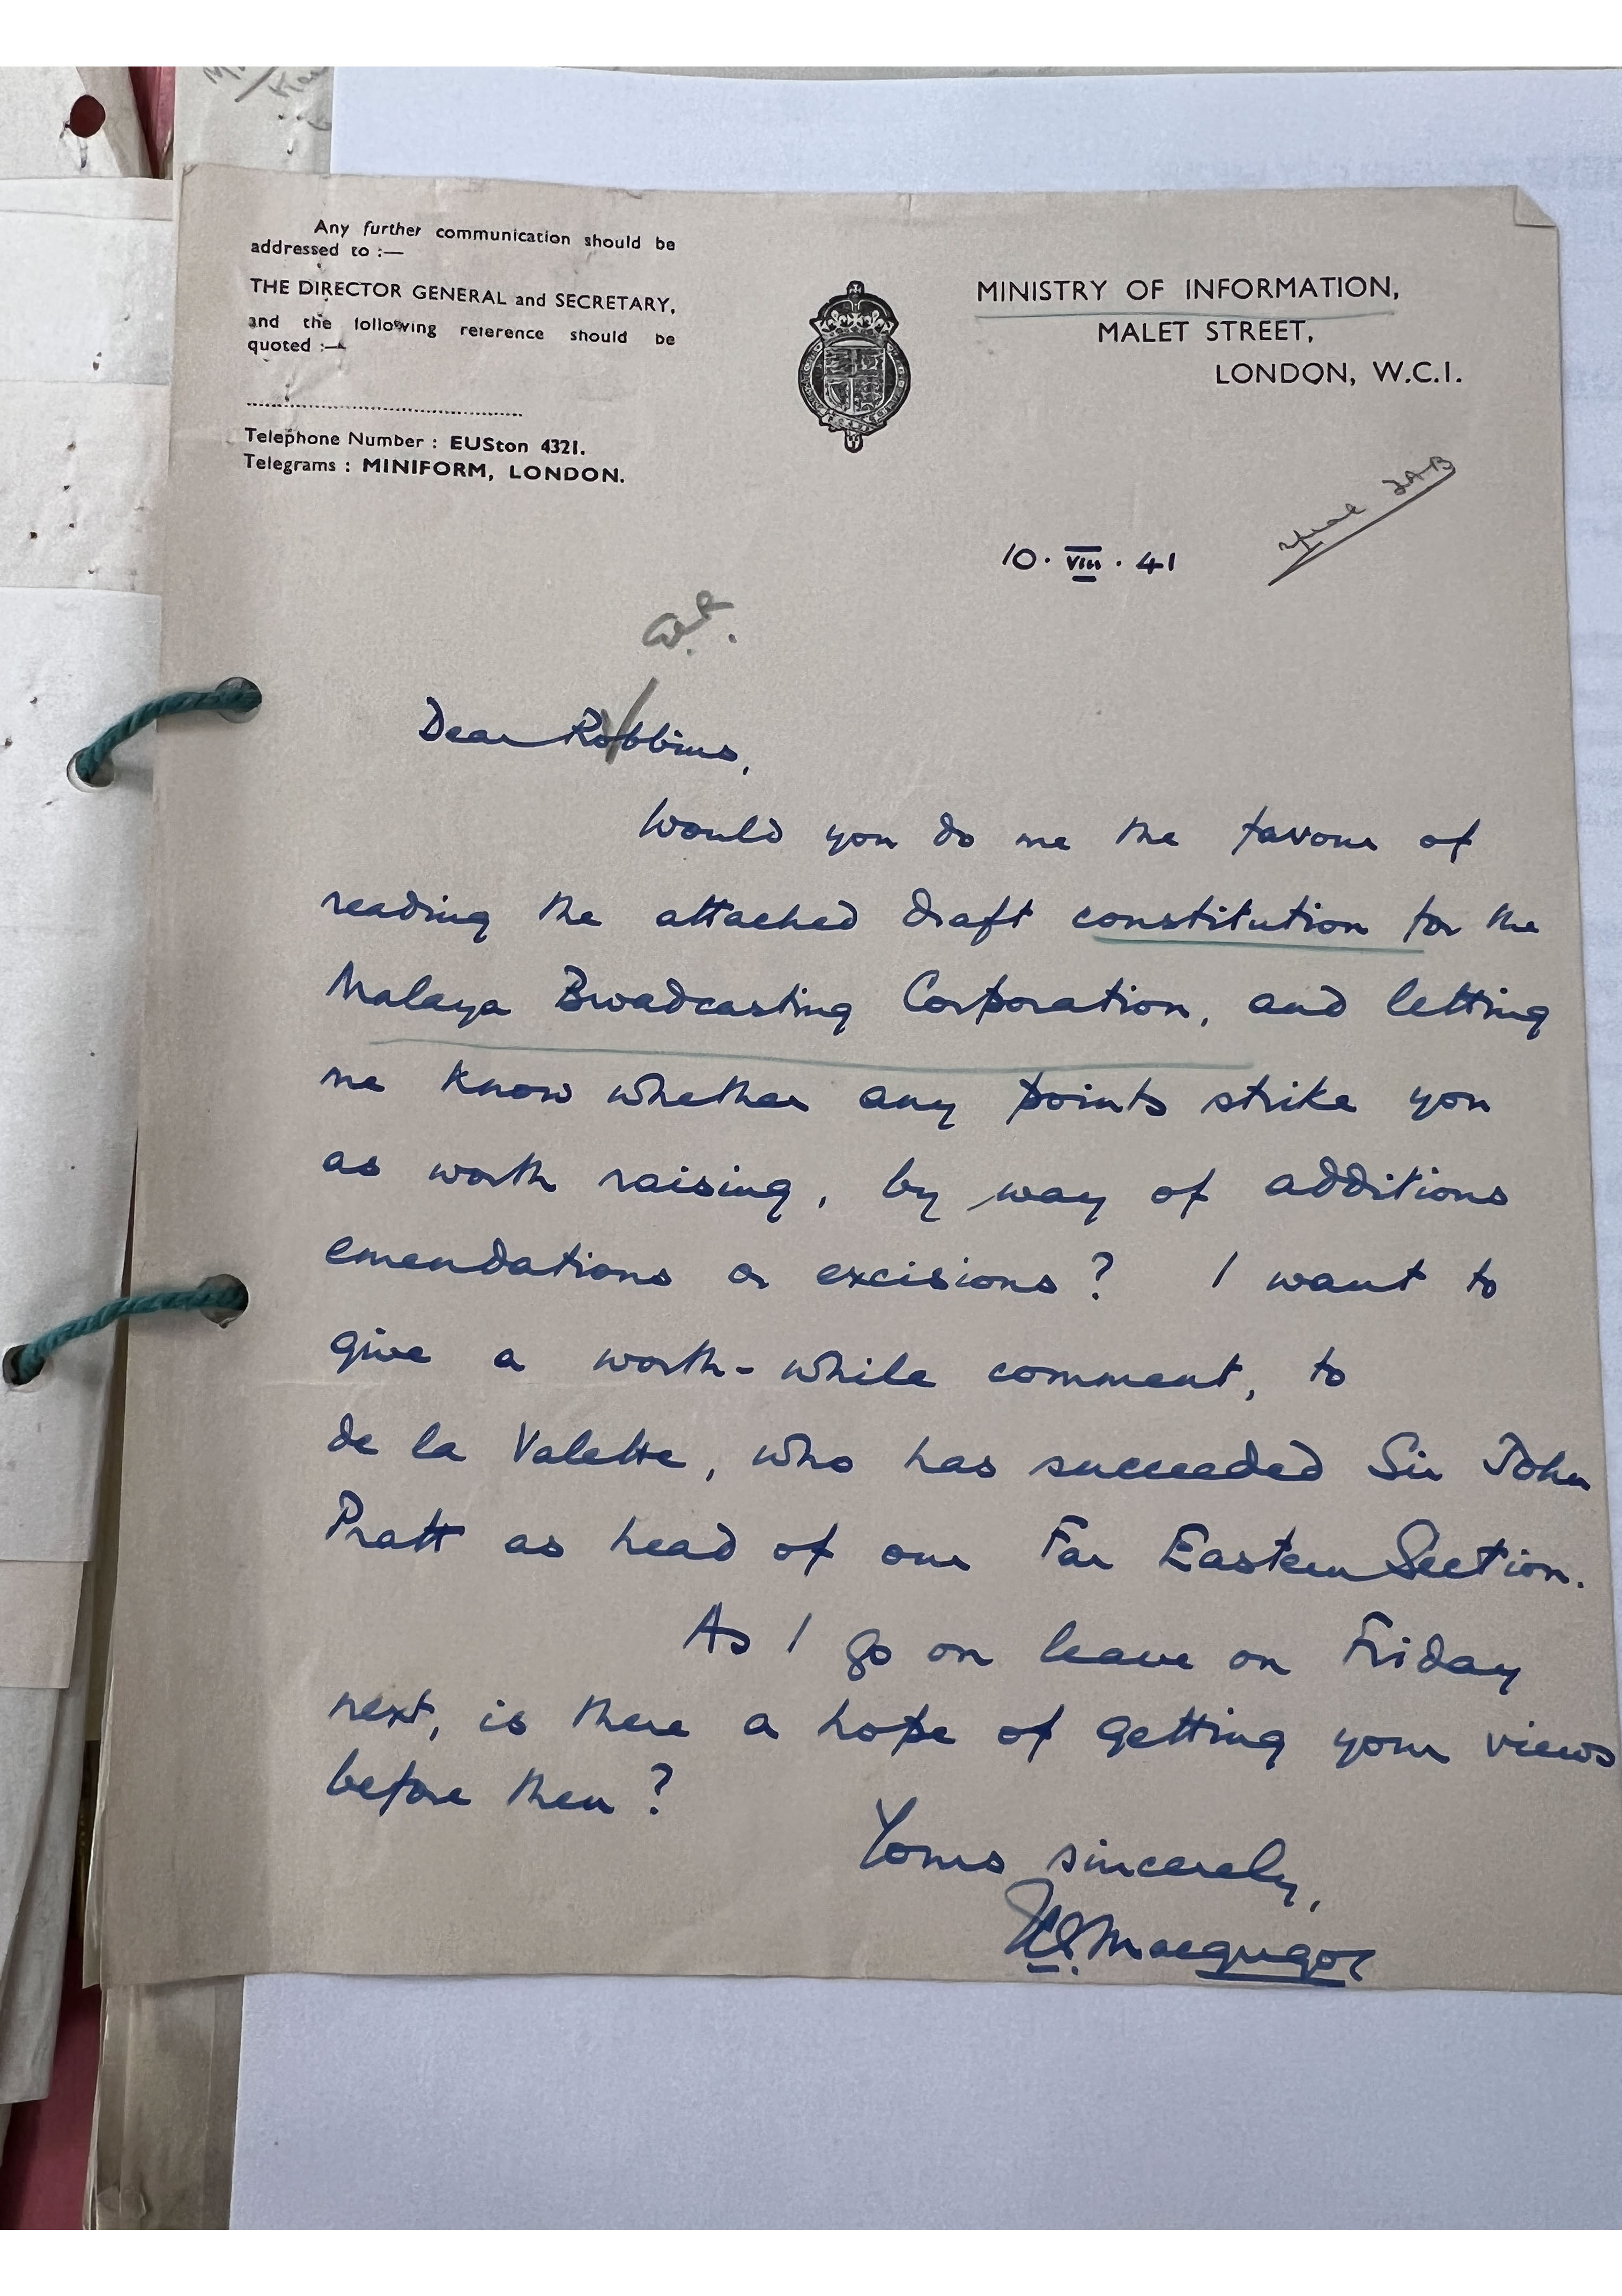 Any further communication should be
addressed to :—
THE DIRECTOR GENERAL and SECRETARY,
and the following reference should be
quoted :—
Telephone Number : EUSton 4321.
Telegrams : MINIFORM, LONDON.
MINISTRY OF INFORMATION,
MALET STREET,
LONDON, W.C.1.
10. VIII. 41
Dear Robbins,
Would you do me the favour of
reading the attached draft constitution for the
Malaya Broadcasting Corporation, and letting
me know whether any points strike you
as worth raising, by way of additions
emendations or excisions? I want to
give a worth-while comment, to
de la Valette, who has succeeded Sir John
Pratt as head of our Far Eastern Section.
As I go on leave on Friday
next, is there a hope of getting your views
before then?
Yours sincerely,
Macgregor